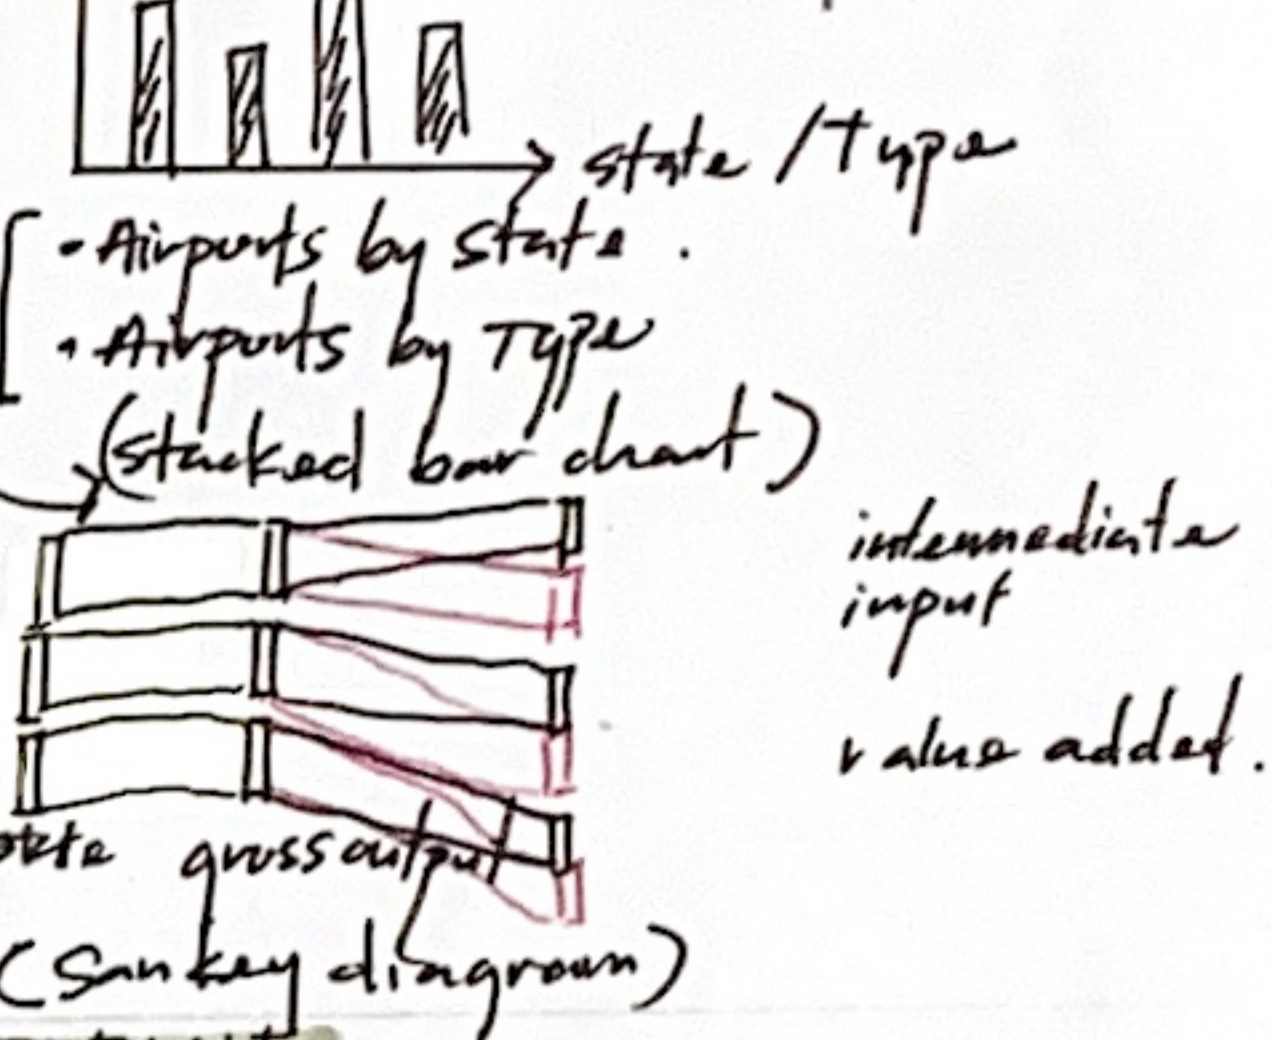 state / Type
• Airports by state .
• Airports by Type
(stacked bar chart)
intermediate
input
value added.
gross output
(Sankey diagram)